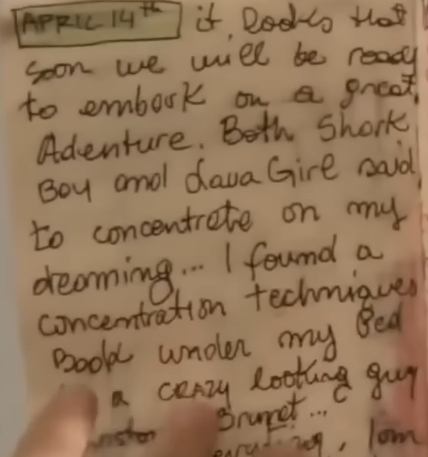 APRIL 14th it looks that
soon we will be ready
to embark on a great
Adenture. Both Shark
Boy and Lava Girl said
to concentrate on my
dreaming... I found a
concentration techniques
Book under my Bed
a CRAZY looking guy